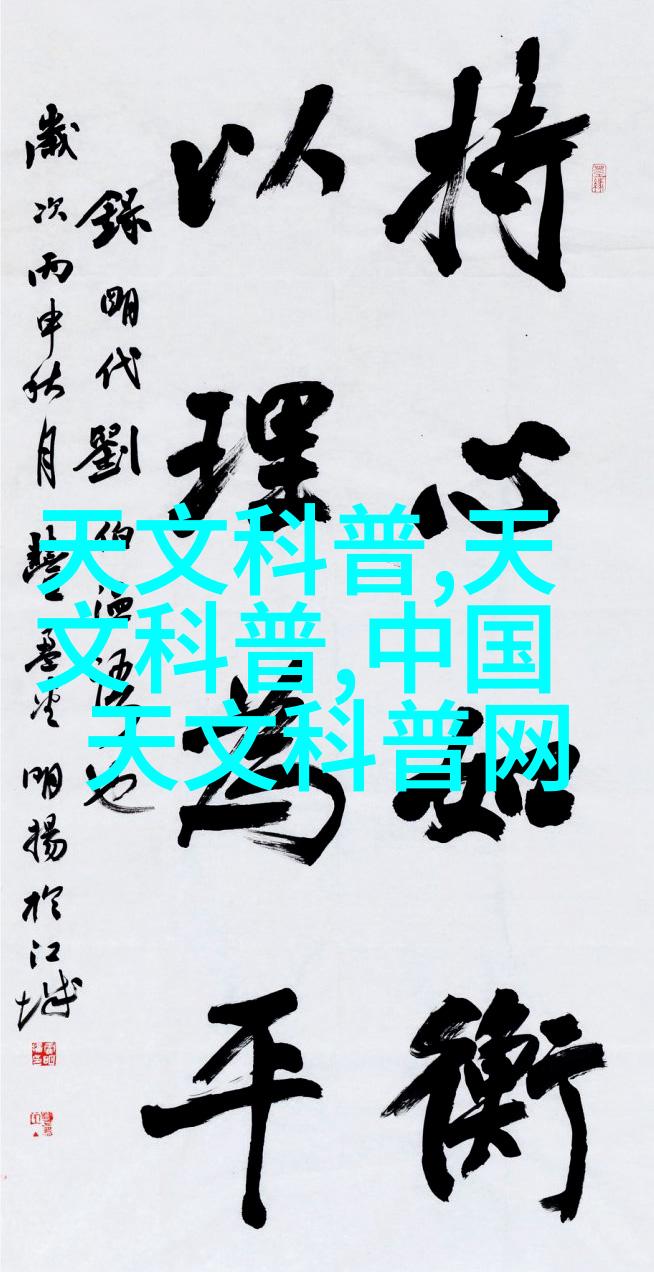 持心如衡
以理為平
錄明代劉伯温
也
歲次丙申秋月
明揚於江城
天文科普,天
文科普,中国
天文科普网